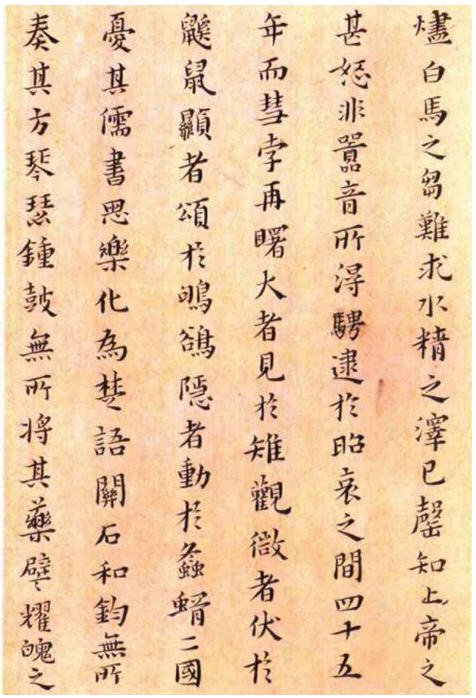 燼白馬之芻難求水精之澤已罄知上帝之
甚怒非囂音所得騁逮於昭哀之間四十五
年而彗孛再曙大者見於雉觀微者伏於
鼷鼠顯者頌於鴝鵒隱者動於螽蝑二國
憂其儒書思樂化為楚語關石和鈞無所
奏其方琴瑟鍾鼓無所將其藥耀魄之